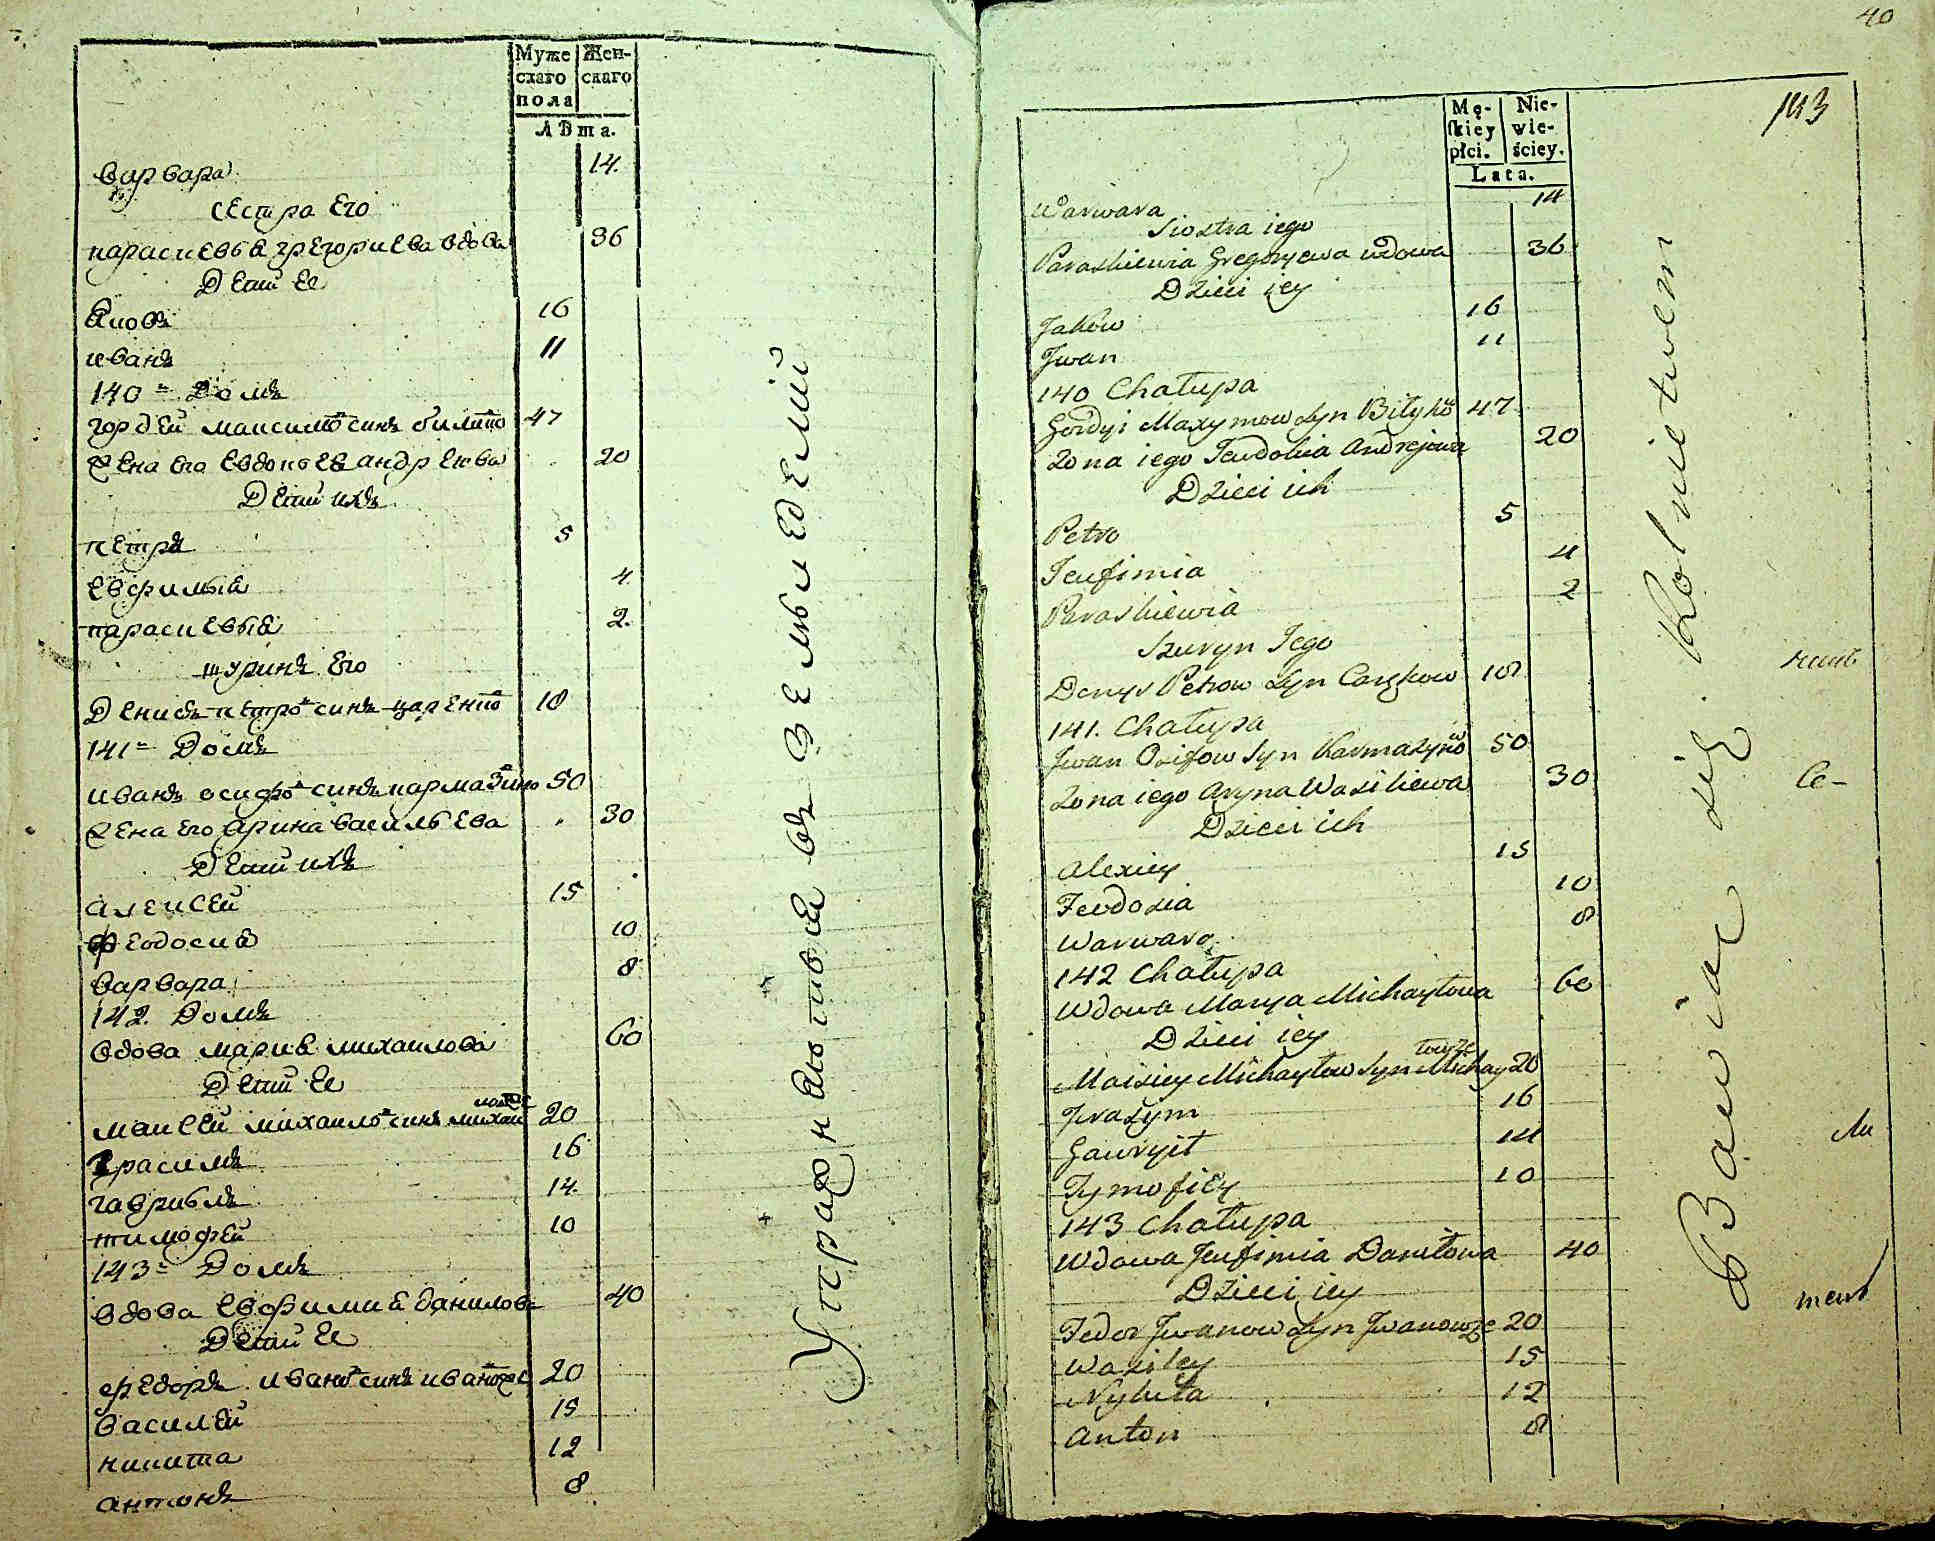 Муже Жен-
скаго скаго
пола
Лѣта.
варвара 14.
сестра его
параскевья грегориева вдова 36
Дети ее
яковъ 16
иванъ 11
140 = Домъ
гордей максимовъ синъ 47
жена его евдокея андреева 20
Дети ихъ
петръ 5
евфимия 4
параскевия 2.
шуринъ его
Денисъ петровъ синъ царенко 18
141 = Домъ
иванъ осифовъ синъ кармазинъ 50
жена его арина васильева 30
Дети ихъ
алексей 15
феодосия 10
варвара 8
142. Домъ
вдова мария михаилова 60
Дети ее
моисей михаиловъ синъ 20
герасимъ 16
гавриылъ 14
тимофей 10
143 = Домъ
вдова евфимия данилова 40
Дети ее
федоръ ивановъ синъ 20
василей 15
никита 12
антонъ 8
въ земледелий
40
143
Mę- Nie-
skiey wie-
płci. ściey.
Lata.
Warwara 14
Siostra iego
Paraskiewia Gregoryewa wdowa 36
Dzieci iey
Jaków 16
Jwan 11
140 Chałupa
Gordyi Maxymow Syn 47
Zona iego Jeudokia Andrejewa 20
Dzieci ich
Petro 5
Jeufimia 4
Paraskiewia 2
Szuryn Jego
Denys Petrow Syn 18
141. Chałupa
Jwan Osifow Syn 50
Zona iego Aryna Wasiliewa 30
Dzieci ich
Alexiey 15
Feodosia 10
Warwara 8
142 Chałupa
Wdowa Marya Michayłowa 60
Dzieci iey
Moisiey Michayłow Syn 20
Jrasym 16
Gawryił 14
Tymofiey 10
143 Chałupa
Wdowa Jeufimia Daniłowa 40
Dzieci iey
Fedor Jwanow Syn 20
Wasiley 15
Nykita 12
Anton 8
Bawiąc się Rolnictwem